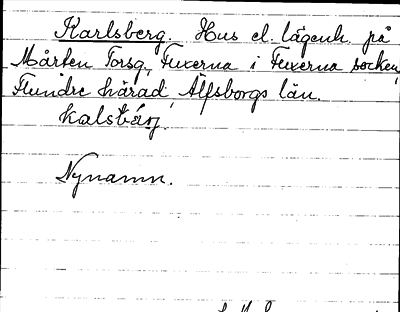 Karlsberg. Hus el. lägenh. på
Mårten Torsg, Fuxerna i Fuxerna socken,
Flundre härad, Älfsborgs län.
kalsbärj.
Nynamn.